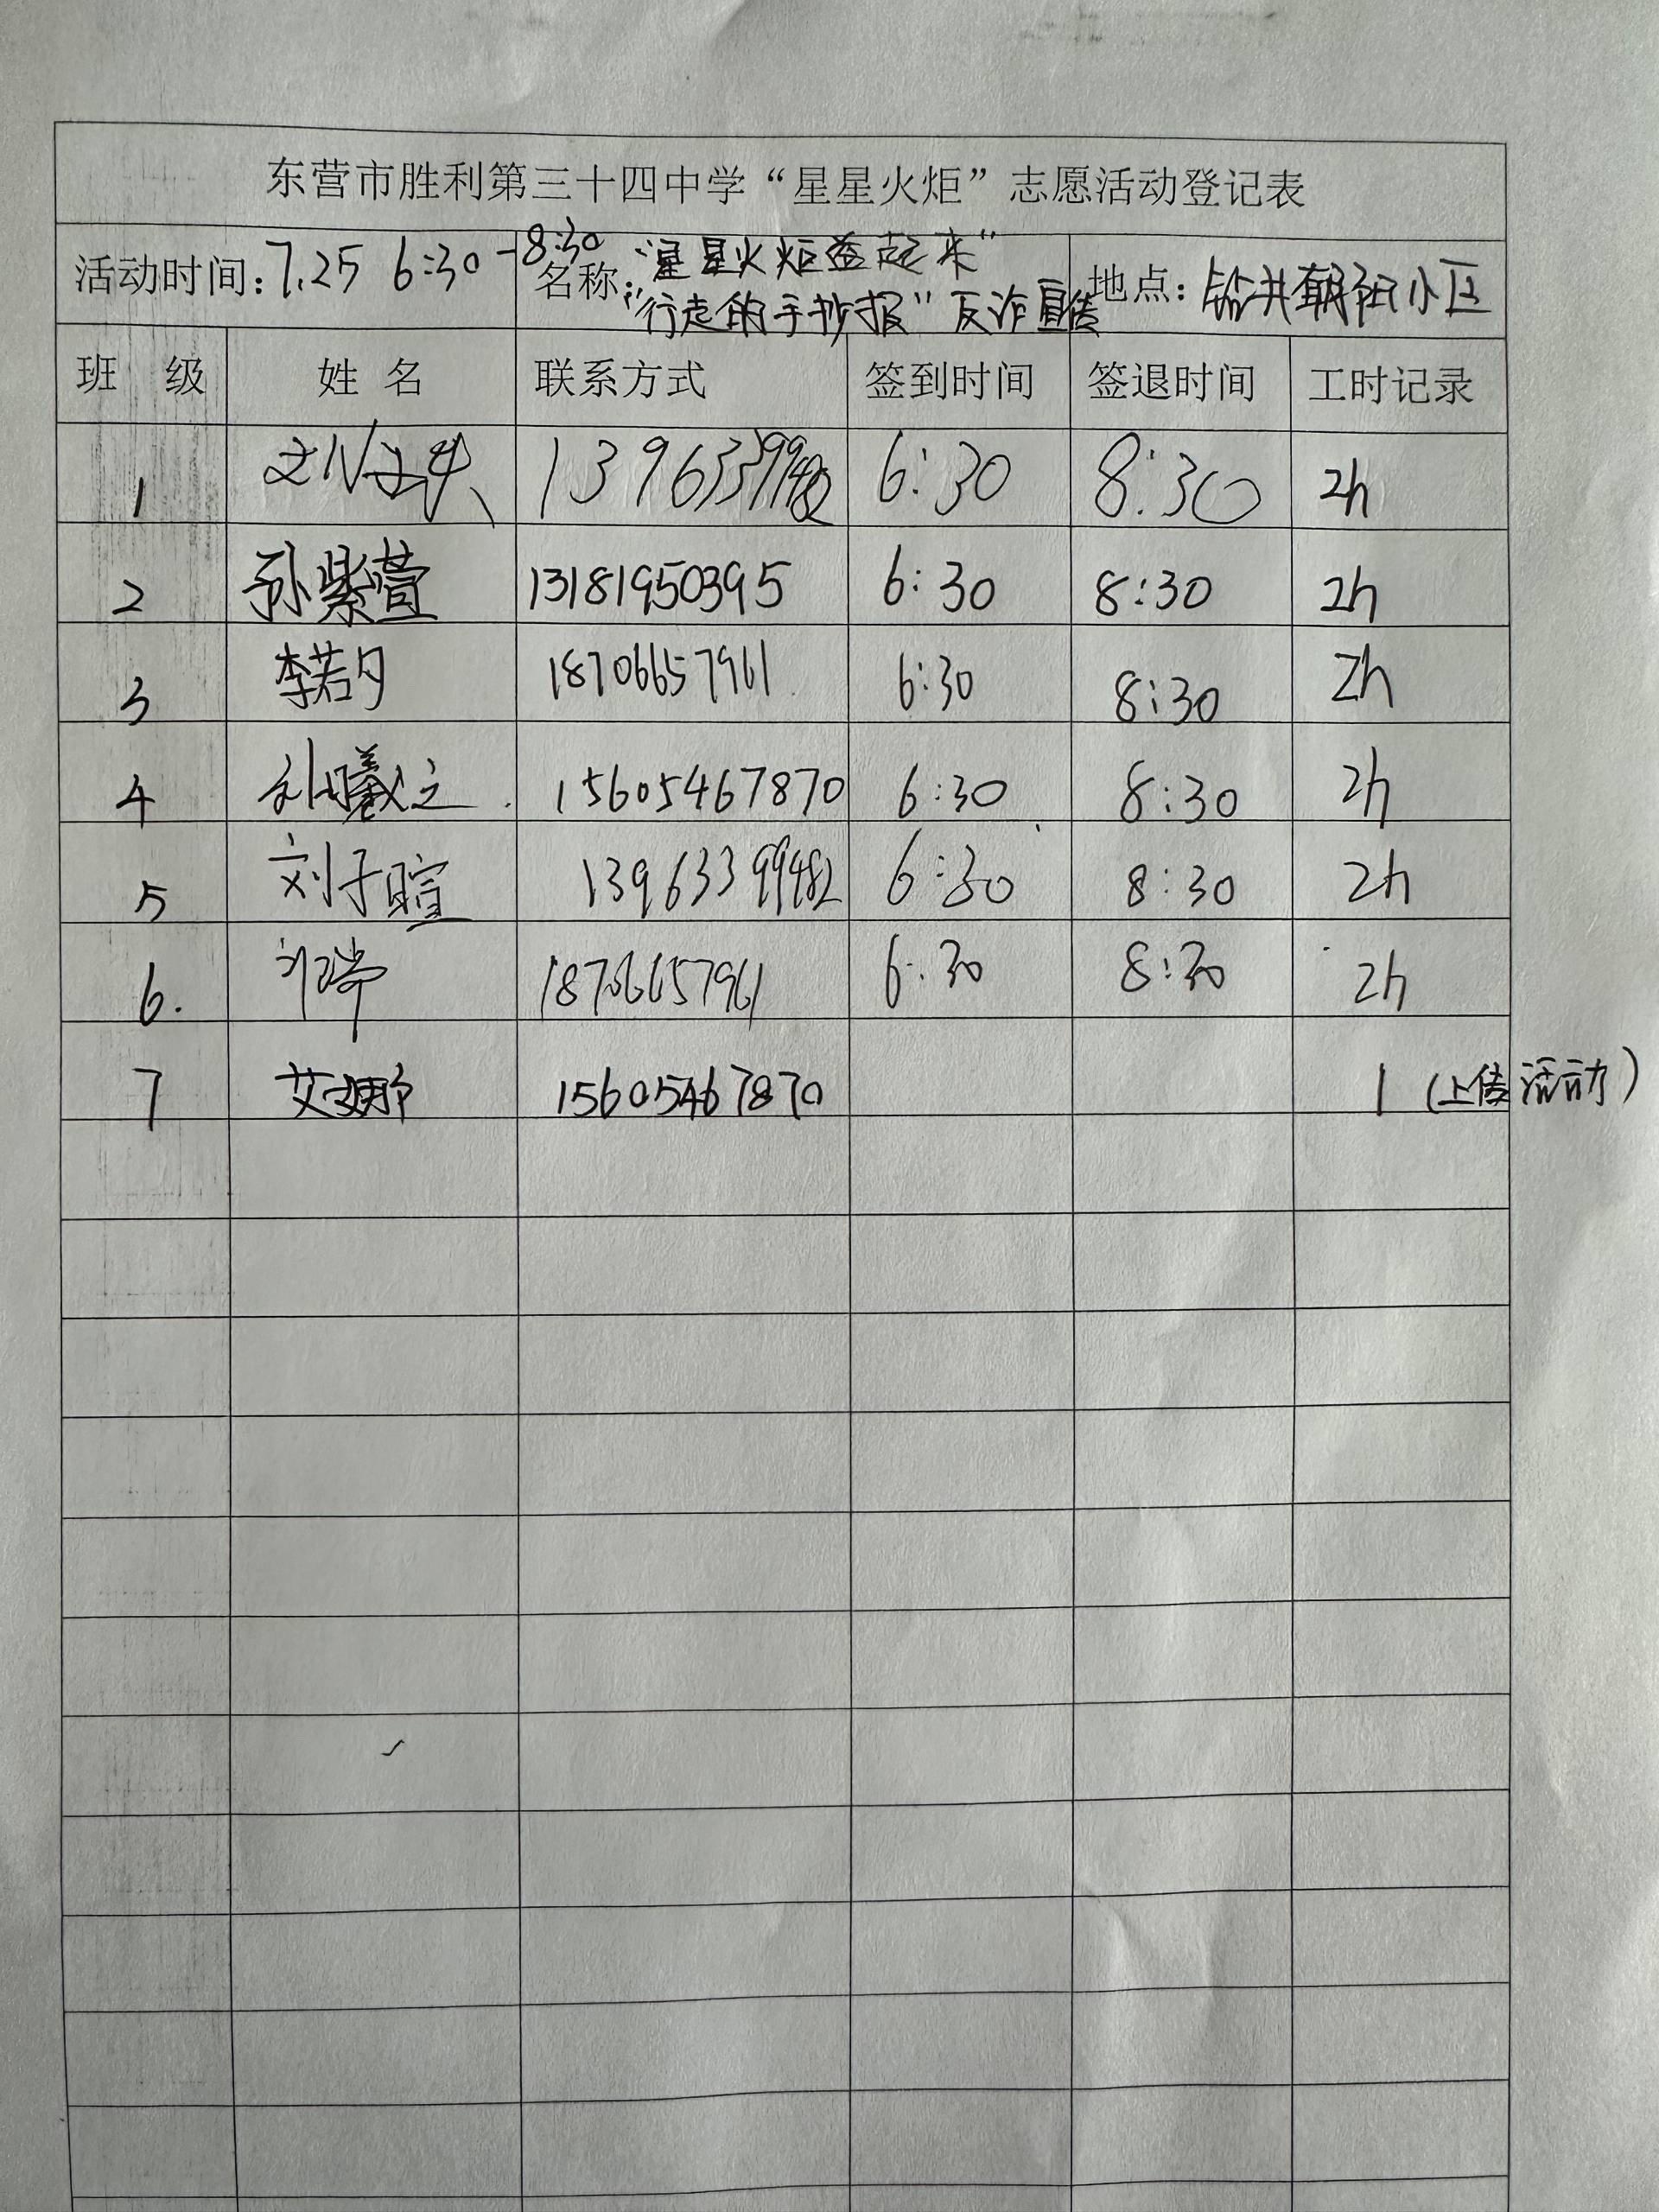 东营市胜利第三十四中学“星星火炬”志愿活动登记表
活动时间：7.25 6:30-8:30 名称：“星星火炬益起来” “行走的手抄报”反诈宣传 地点：钻井朝阳小区
班 级 姓 名 联系方式 签到时间 签退时间 工时记录
1 13963399482 6:30 8:30 2h
2 孙紫萱 13181950395 6:30 8:30 2h
3 李若夕 18706657961 6:30 8:30 2h
4 刘曦之 15605467870 6:30 8:30 2h
5 刘子暄 13963399482 6:30 8:30 2h
6. 18706657961 6:30 8:30 2h
7 15605467870 1（上传活动）